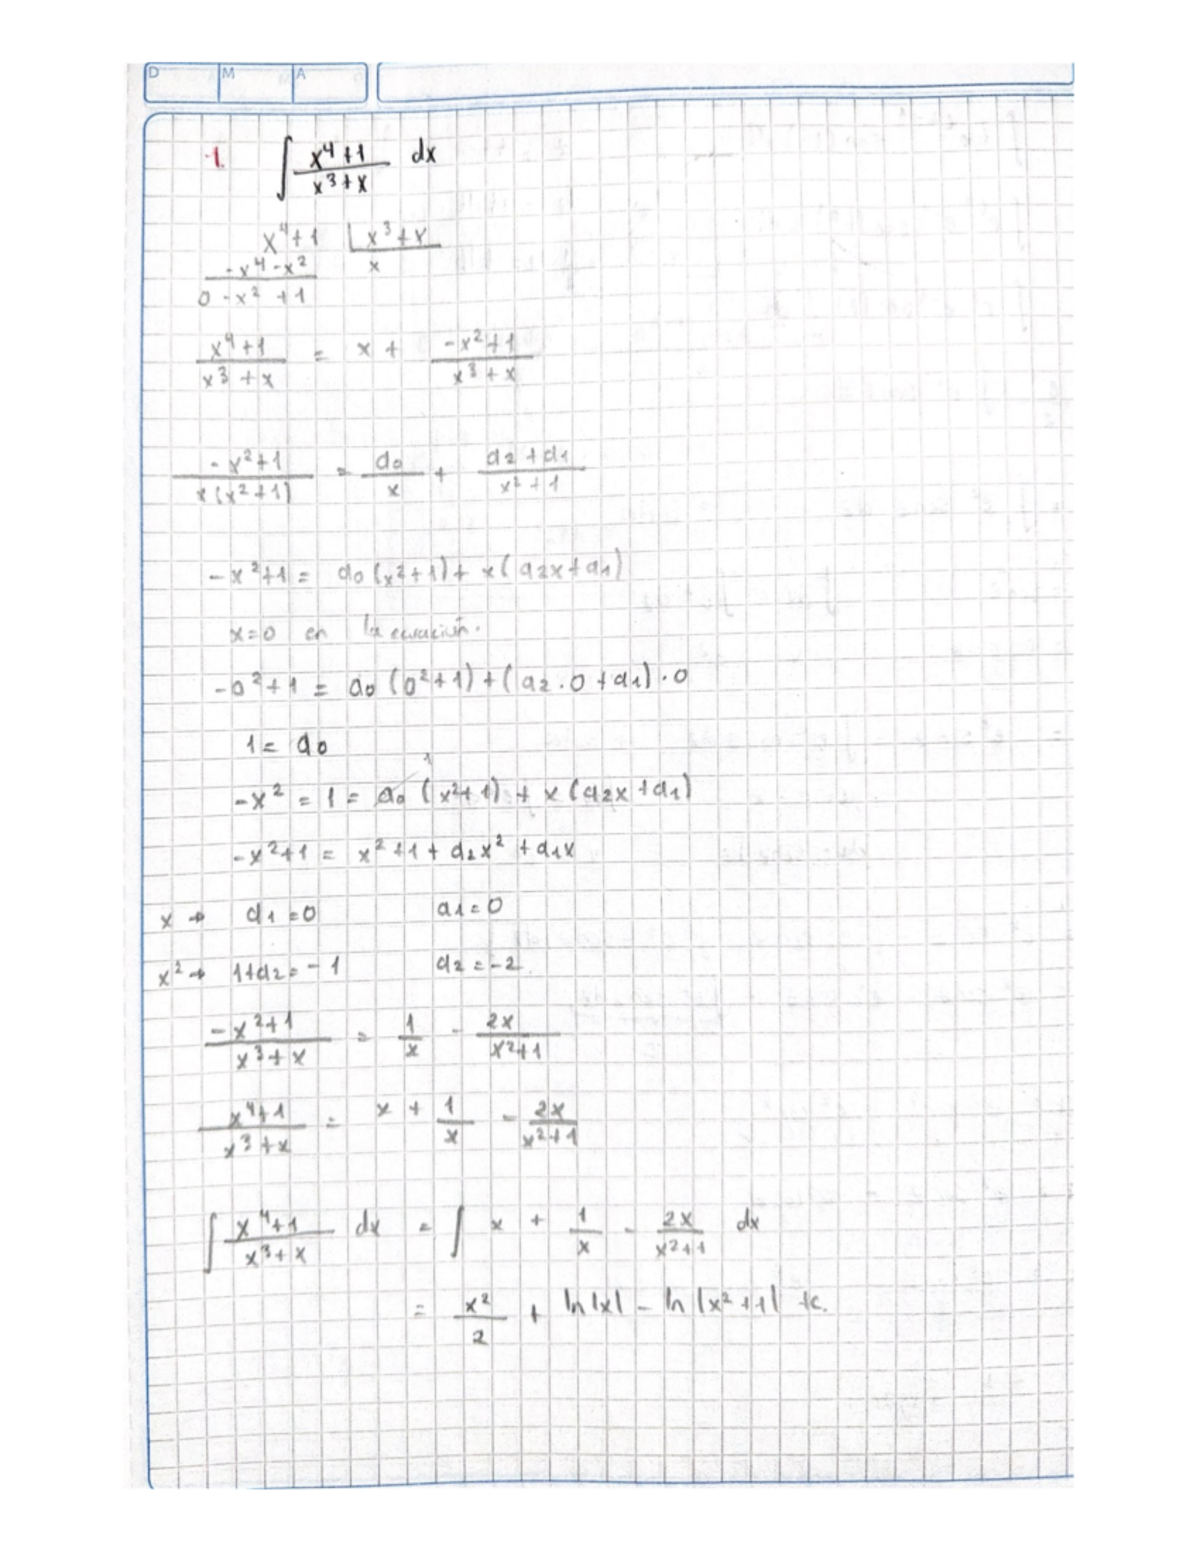 D M A
1. ∫ (x⁴+1)/(x³+x) dx
x⁴+1 | x³+x
-x⁴-x² x
0 -x² +1
(x⁴+1)/(x³+x) = x + (-x²+1)/(x³+x)
(-x²+1)/(x(x²+1)) = a₀/x + (a₂+a₁)/(x²+1)
-x²+1 = a₀(x²+1)+ x(a₂x+a₁)
x=0 en la ecuación.
-0²+1 = a₀(0²+1)+(a₂.0+a₁).0
1 = a₀
1
-x² = 1 = a₀(x²+1) + x(a₂x+a₁)
-x²+1 = x²+1+a₂x²+a₁x
x → a₁=0 a₁=0
x² → 1+a₂=-1 a₂=-2
(-x²+1)/(x³+x) = 1/x - 2x/(x²+1)
(x⁴+1)/(x³+x) = x + 1/x - 2x/(x²+1)
∫ (x⁴+1)/(x³+x) dx = ∫ x + 1/x - 2x/(x²+1) dx
= x²/2 + ln|x| - ln|x²+1| +c.